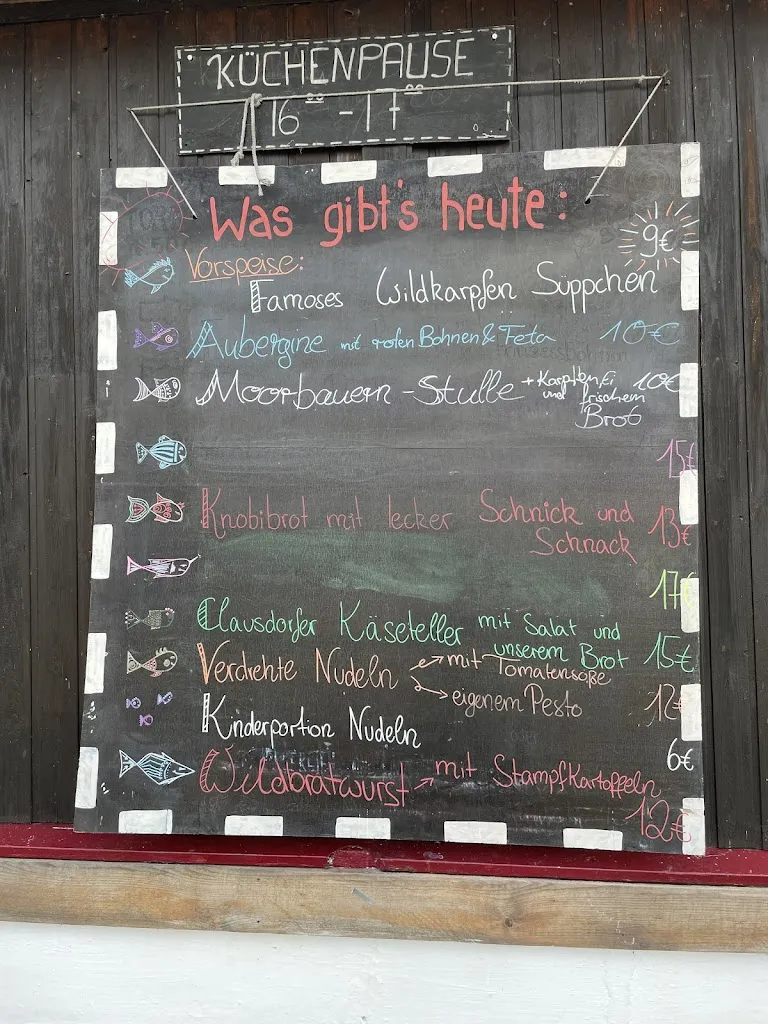 KÜCHENPAUSE
16⁰⁰ - 17⁰⁰
Was gibt's heute:
9€
Vorspeise:
Famoses Wildkarpfen Süppchen
Aubergine mit roten Bohnen & Feta 10€
Moorbauern-Stulle + Karpfen Ei 10€
und frischem
Brot
15€
Knobibrot mit lecker Schnick und 13€
Schnack
17€
Clausdorfer Käseteller mit Salat und
unserem Brot 15€
Verdrehte Nudeln mit Tomatensoße
eigenem Pesto 12€
Kinderportion Nudeln
6€
Wildbratwurst mit Stampfkartoffeln
12€